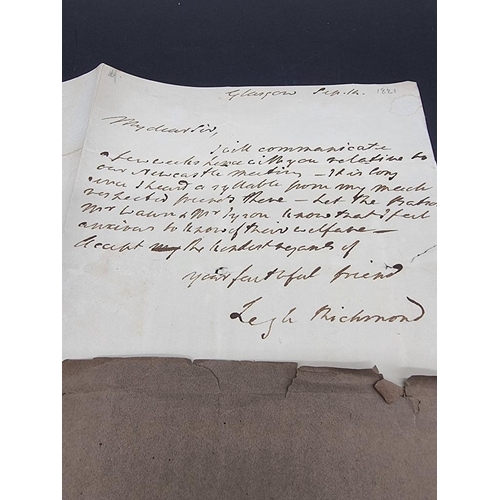 Glasgow Sep. 14. 1821
My dear Sir,
I will communicate
a few weeks hence with you relative to
our Newcastle meeting - It is long
since I heard a syllable from my much
respected friends there - Let the
Mr & Mr Tyson know that I feel
anxious to know of their welfare -
Accept my the kindest regards of
your faithful friend
Legh Richmond